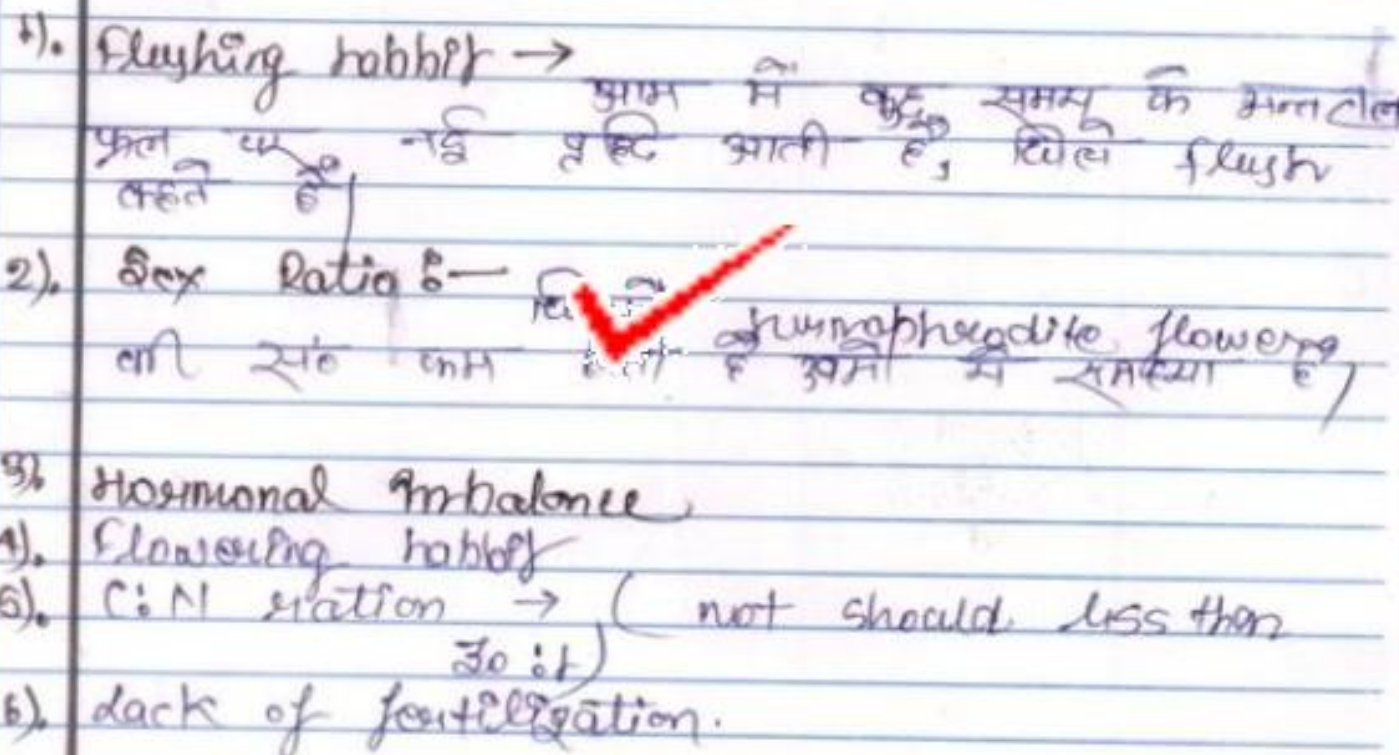 1). Flushing habbit →
आम में कुछ समय के अन्तराल
फल पर नई वृद्धि आती है, जिसे flush
कहते हैं|
2). Sex Ratio :—
hurmaphrodite flowers
की सं० कम होती है उसमें ये समस्या है|
3). Hormonal Imbalance
4). Flowering habbit
5). C:N ration → ( not should less than
30:1)
6). Lack of fertilization.